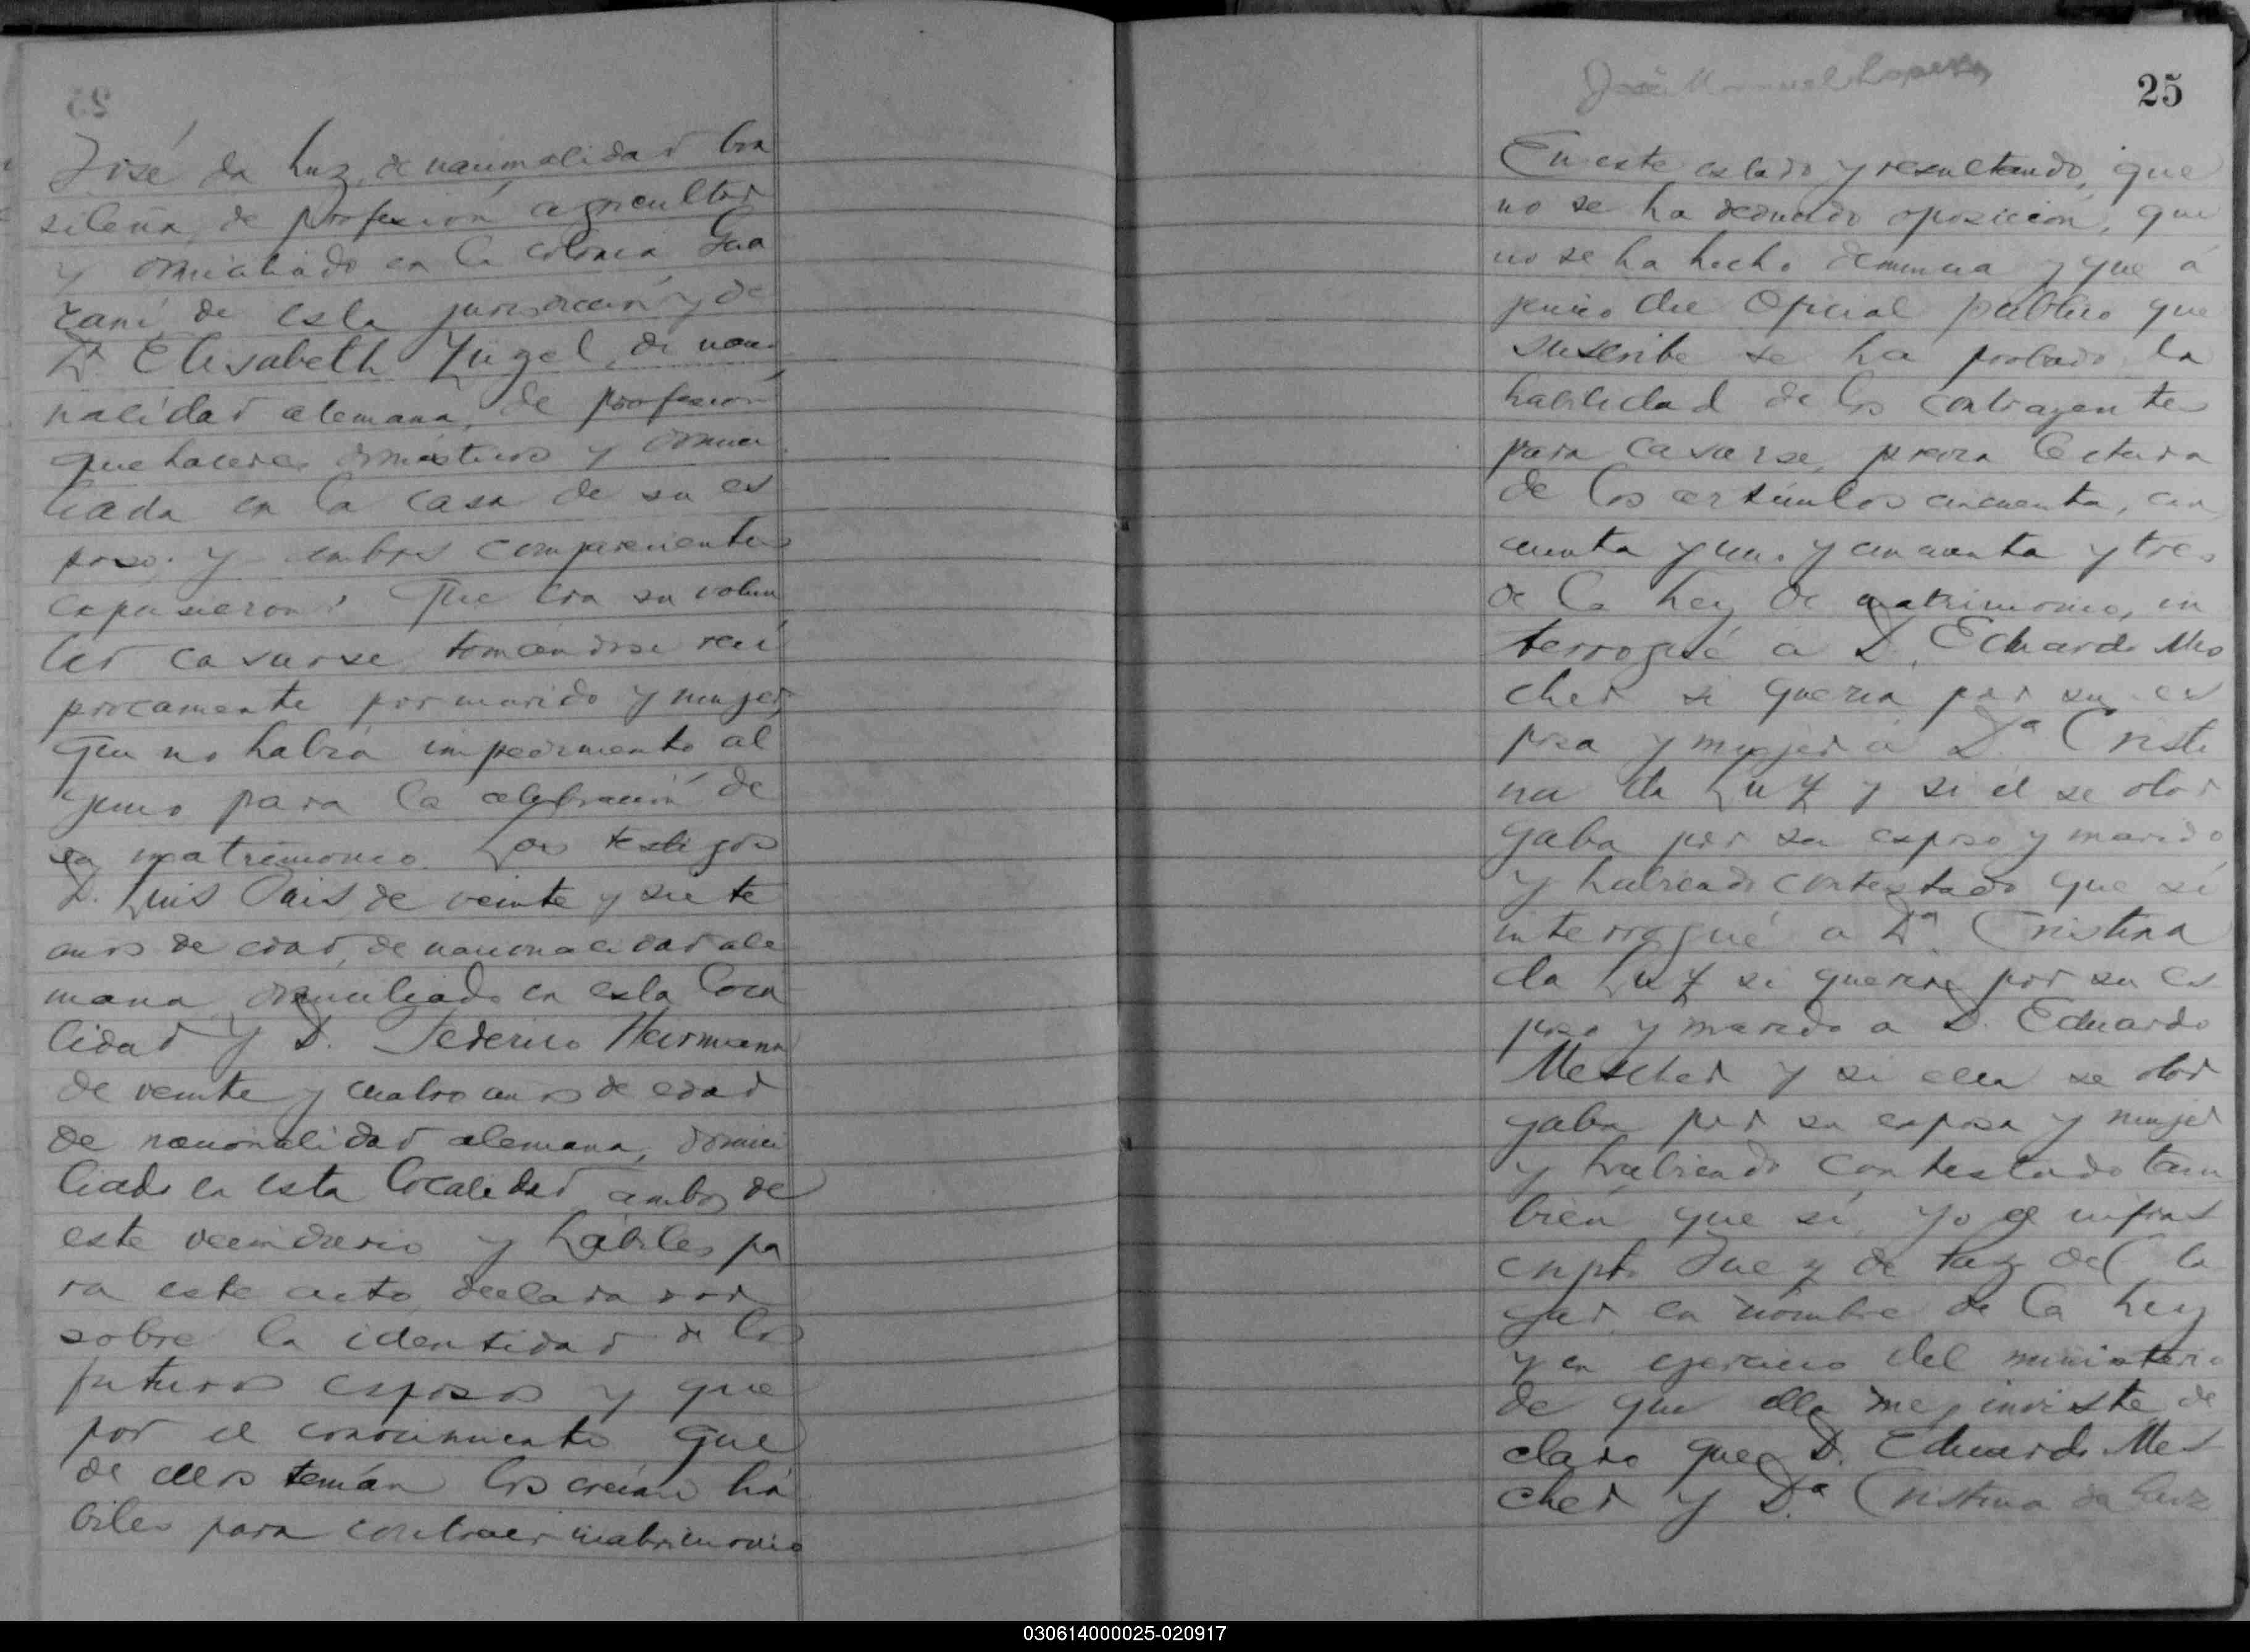 José da Luz, de nacionalidad bra
sileña, de profesión agricultor
y domiciliado en la colonia Gua
raní de esta jurisdicción y de
Dª Elisabeth Zügel, de nacio
nalidad alemana, de profesión
quehaceres domésticos y domici
liada en la casa de su es
poso. y ambos comparecientes
expusieron: Que era su volun
tad casarse, tomándose recí
procamente por marido y mujer,
que no había impedimento al
guno para la celebración de
su matrimonio. Los testigos
D. Luis Pais, de veinte y siete
años de edad, de nacionalidad ale
mana, domiciliado en esta loca
lidad y D. Federico Hermann
de veinte y cuatro años de edad
de nacionalidad alemana, domici
liado en esta localidad ambos de
este vecindario y hábiles pa
ra este acto, declararon
sobre la identidad de los
futuros esposos y que
por el conocimiento que
de ellos tenían los creían há
biles para contraer matrimonio
José Manuel
25
En este estado y resultando, que
no se ha deducido oposición, que
no se ha hecho denuncia y que á
juicio del Oficial público que
suscribe se ha probado la
habilidad de los contrayentes
para casarse, previa lectura
de los artículos cincuenta, cin
cuenta y uno y cincuenta y tres
de la Ley de matrimonio, in
terrogué á D. Eduardo Mes
cher si quería por su es
posa y mujer á Dª Cristi
na da Luz y si él se otor
gaba por su esposo y marido
y habiendo contestado que sí
interrogué a Dª Cristina
da Luz si quería por su es
poso y marido a D. Eduardo
Mescher y si ella se otor
gaba por su esposa y mujer
y habiendo contestado tam
bién que sí, yo el infras
cripto Juez de Paz del lu
gar en nombre de la Ley
y en ejercicio del ministerio
de que ella me inviste, de
claro que D. Eduardo Mes
cher y Dª Cristina da Luz
030614000025-020917